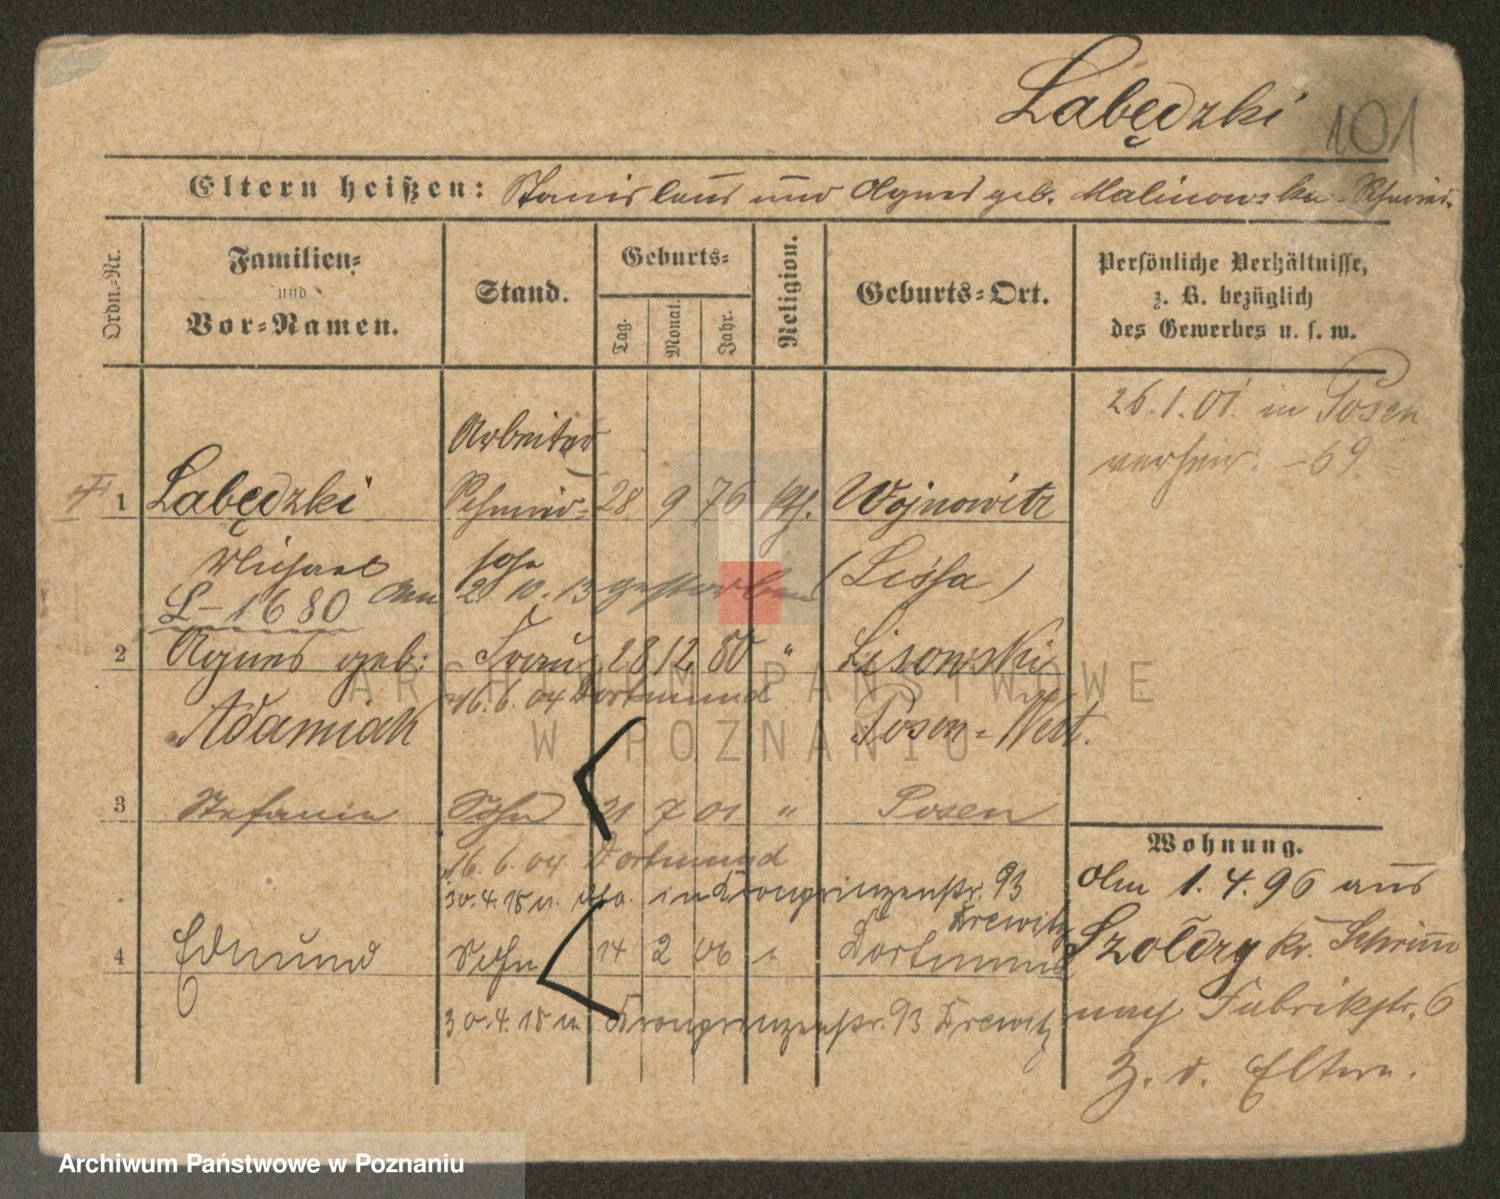 Labędzki 101
Eltern heißen: Stanislaus und Agnes geb. Malinowska Schmied.
Ordn.-Nr.
Familien- und Vor-Namen.
Stand.
Geburts-
Tag. Monat. Jahr.
Religion.
Geburts-Ort.
Persönliche Verhältnisse,
z. B. bezüglich
des Gewerbes u. s. w.
26.1.01. in Posen
verheir. -69.
Arbeiter
1 Labędzki Schmied- 28 9 76 kth. Wojnowitz
Michael sohn (Lissa)
L-1680 Am 2. 10. 13 gestorben
2 Agnes geb. Frau 28 12 80 " Lisowski
16.6.04 Dortmund
Adamiak Posen-West.
3 Stefanie 21 7 01 " Posen
16.6.04 Dortmund
30.4.18 n. in Kronprinzenstr. 93
Drewitz
4 Edmund Sohn 14 2 06 " Dortmund
30.4.18 n. Kronprinzenstr. 93 Drewitz
Wohnung.
Am 1.4.96 aus
Szoldry Kr. Schrimm
nach Fabrikstr. 6
z. d. Eltern.
ARCHIWUM PAŃSTWOWE
W POZNANIU
Archiwum Państwowe w Poznaniu